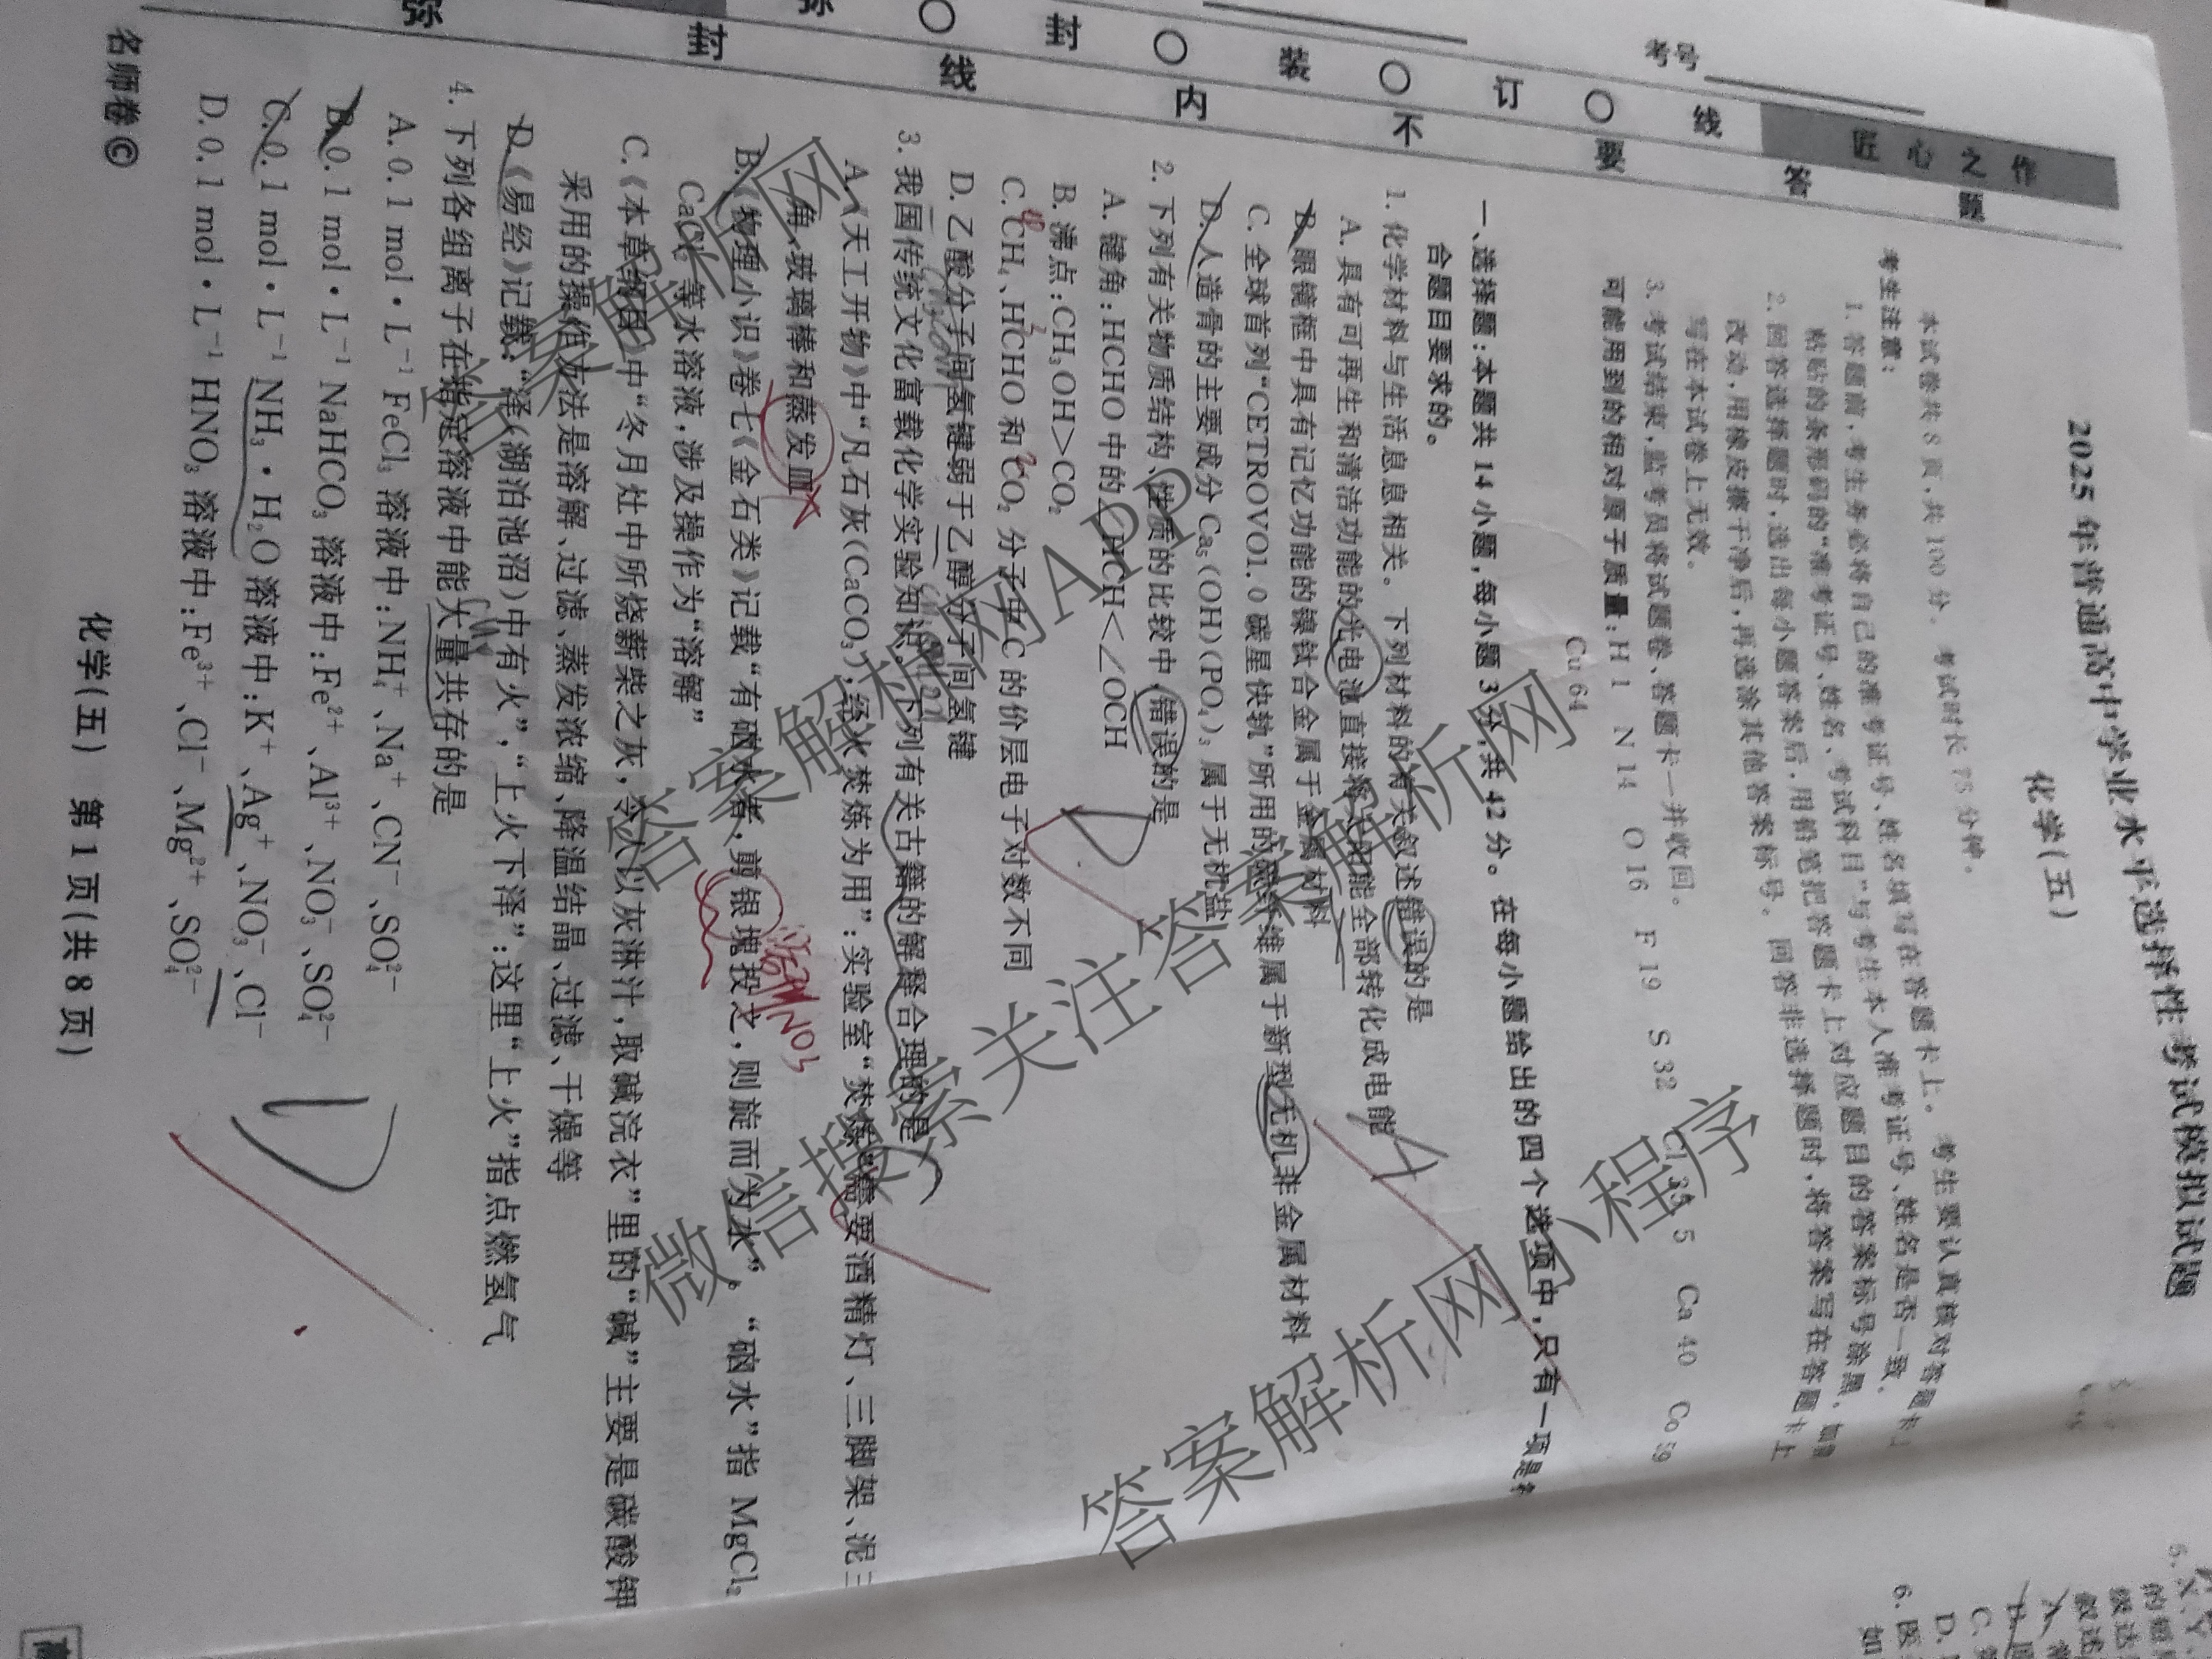 考号
匠心之作
弥 〇 封 〇 装 〇 订 〇 线
弥 封 线 内 不 要 答 题
2025年普通高中学业水平选择性考试模拟试题
化学(五)
本试卷共8页,共100分。考试时长75分钟。
考生注意:
1.答题前,考生务必将自己的准考证号、姓名填写在答题卡上。考生要认真核对答题卡上
粘贴的条形码的“准考证号、姓名、考试科目”与考生本人准考证号、姓名是否一致。
2.回答选择题时,选出每小题答案后,用铅笔把答题卡上对应题目的答案标号涂黑。如需
改动,用橡皮擦干净后,再选涂其他答案标号。回答非选择题时,将答案写在答题卡上
写在本试卷上无效。
3.考试结束,监考员将试题卷、答题卡一并收回。
可能用到的相对原子质量:H 1 N 14 O 16 F 19 S 32 Cl 35.5 Ca 40 Co 59
Cu 64
一、选择题:本题共14小题,每小题3分,共42分。在每小题给出的四个选项中,只有一项是符
合题目要求的。
1.化学材料与生活息息相关。下列材料的有关叙述错误的是
A.具有可再生和清洁功能的光电池直接将太阳能全部转化成电能
B.眼镜框中具有记忆功能的镍钛合金属于金属材料
C.全球首列“CETROVO1.0碳星快轨”所用的碳纤维属于新型无机非金属材料
D.人造骨的主要成分Ca₅(OH)(PO₄)₃属于无机盐
2.下列有关物质结构、性质的比较中,错误的是
A.键角:HCHO中的∠HCH<∠OCH
B.沸点:CH₃OH>CO₂
C.CH₄、HCHO和CO₂分子中C的价层电子对数不同
D.乙酸分子间氢键弱于乙醇分子间氢键
3.我国传统文化富载化学实验知识。下列有关古籍的解释合理的是
A.《天工开物》中“凡石灰(CaCO₃),经火焚炼为用”:实验室“焚炼”需要酒精灯、三脚架、泥三
角、玻璃棒和蒸发皿
B.《物理小识》卷七《金石类》记载“有硇水者,剪银塊投之,则旋而为水”。“硇水”指MgCl₂、
CaCl₂等水溶液,涉及操作为“溶解”
C.《本草纲目》中“冬月灶中所烧薪柴之灰,令人以灰淋汁,取碱浣衣”里的“碱”主要是碳酸钾
采用的操作方法是溶解、过滤、蒸发浓缩、降温结晶、过滤、干燥等
D.《易经》记载:“泽(湖泊池沼)中有火”,“上火下泽”:这里“上火”指点燃氢气
4.下列各组离子在指定溶液中能大量共存的是
A.0.1 mol·L⁻¹ FeCl₃溶液中:NH₄⁺、Na⁺、CN⁻、SO₄²⁻
B.0.1 mol·L⁻¹ NaHCO₃溶液中:Fe²⁺、Al³⁺、NO₃⁻、SO₄²⁻
C.0.1 mol·L⁻¹ NH₃·H₂O溶液中:K⁺、Ag⁺、NO₃⁻、Cl⁻
D.0.1 mol·L⁻¹ HNO₃溶液中:Fe³⁺、Cl⁻、Mg²⁺、SO₄²⁻
名师卷©
化学(五) 第1页(共8页)
答案解析网
答案解析网APP
微信搜索关注答案解析网
答案解析网小程序